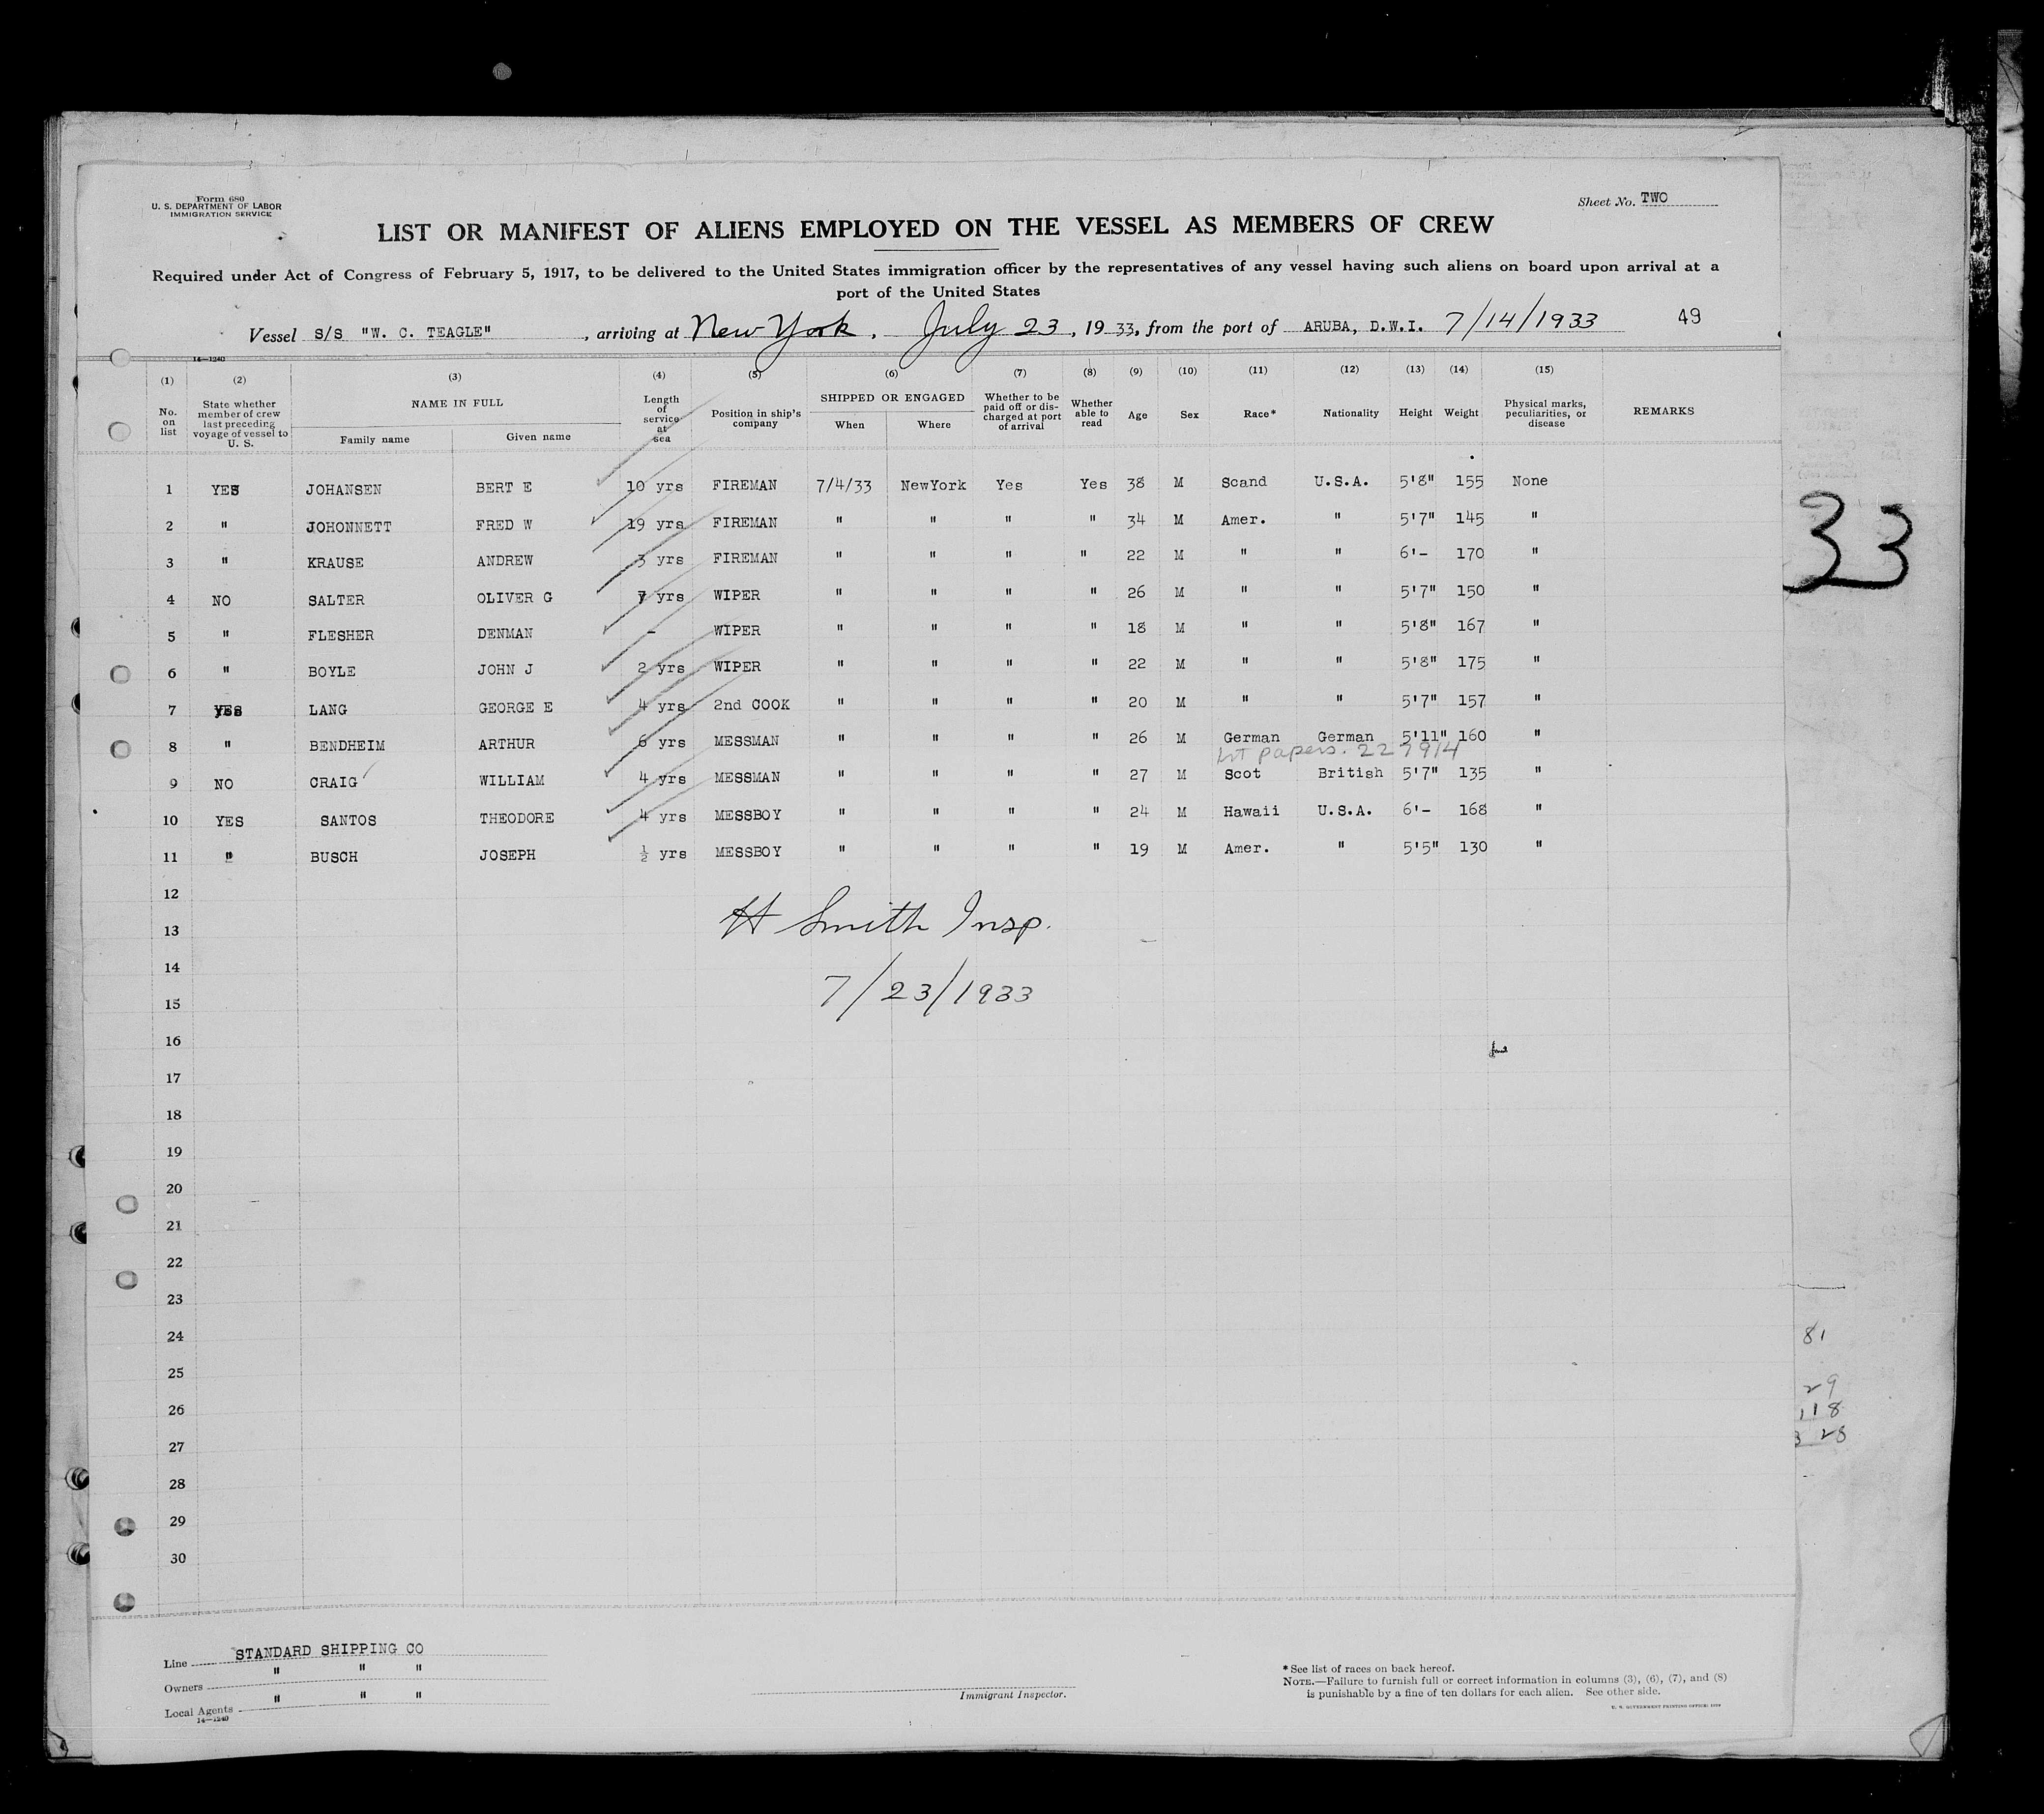 Form 680
U. S. DEPARTMENT OF LABOR
IMMIGRATION SERVICE
Sheet No. TWO
LIST OR MANIFEST OF ALIENS EMPLOYED ON THE VESSEL AS MEMBERS OF CREW
Required under Act of Congress of February 5, 1917, to be delivered to the United States immigration officer by the representatives of any vessel having such aliens on board upon arrival at a
port of the United States
Vessel S/S "W. C. TEAGLE", arriving at New York, July 23, 1933, from the port of ARUBA, D.W.I. 7/14/1933 49
14—1240
(1) (2) (3) (4) (5) (6) (7) (8) (9) (10) (11) (12) (13) (14) (15)
No. on list State whether member of crew last preceding voyage of vessel to U. S. NAME IN FULL Family name Given name Length of service at sea Position in ship's company SHIPPED OR ENGAGED When Where Whether to be paid off or discharged at port of arrival Whether able to read Age Sex Race* Nationality Height Weight Physical marks, peculiarities, or disease REMARKS
1 YES JOHANSEN BERT E 10 yrs FIREMAN 7/4/33 NewYork Yes Yes 38 M Scand U.S.A. 5'8" 155 None
2 " JOHONNETT FRED W 19 yrs FIREMAN " " " " 34 M Amer. " 5'7" 145 "
3 " KRAUSE ANDREW 3 yrs FIREMAN " " " " 22 M " " 6'- 170 "
4 NO SALTER OLIVER G 7 yrs WIPER " " " " 26 M " " 5'7" 150 "
5 " FLESHER DENMAN - WIPER " " " " 18 M " " 5'8" 167 "
6 " BOYLE JOHN J 2 yrs WIPER " " " " 22 M " " 5'8" 175 "
7 YES LANG GEORGE E 4 yrs 2nd COOK " " " " 20 M " " 5'7" 157 "
8 " BENDHEIM ARTHUR 6 yrs MESSMAN " " " " 26 M German German 5'11" 160 "
papers. 227914
9 NO CRAIG WILLIAM 4 yrs MESSMAN " " " " 27 M Scot British 5'7" 135 "
10 YES SANTOS THEODORE 4 yrs MESSBOY " " " " 24 M Hawaii U.S.A. 6'- 168 "
11 " BUSCH JOSEPH ½ yrs MESSBOY " " " " 19 M Amer. " 5'5" 130 "
33
12
13
H Smith Insp.
14
15
7/23/1933
16
17
18
19
20
21
22
23
24
81
25
26
29
118
27
28
29
30
Line STANDARD SHIPPING CO
Owners " " "
Local Agents " " "
14—1240
Immigrant Inspector.
* See list of races on back hereof.
NOTE.—Failure to furnish full or correct information in columns (3), (6), (7), and (8)
is punishable by a fine of ten dollars for each alien. See other side.